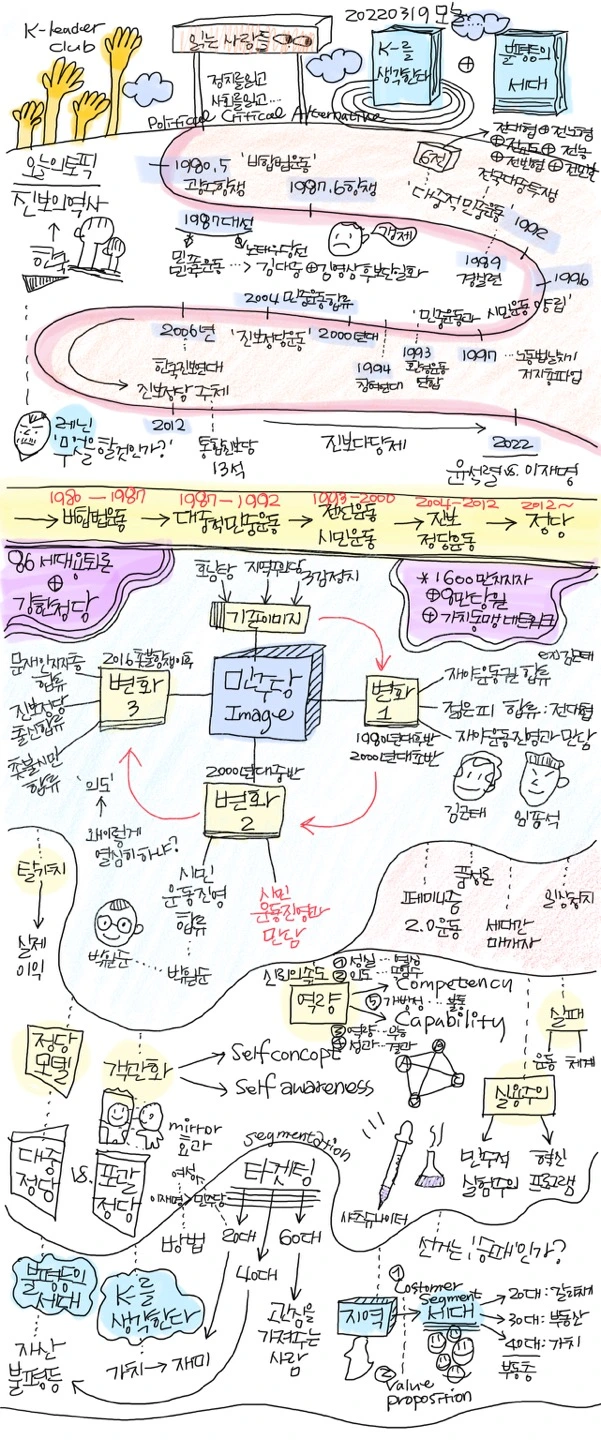 K-leader
club
읽는 사람들
정치를 읽고
사회를 읽고...
Political Critical Alternative
20220319 모늘
K-를
생각한다
⊕
불평등의
세대
오늘의 토픽
진보의 역사
한국
1980.5
광주항쟁
'비합법운동'
1987.6항쟁
'대중적 민중운동'
1992
1987대선
김대중 ⊕ 김영삼 후보단일화
1989
경실련
1996
'민중운동과 시민운동 양립'
2004 민중운동 합류
2006년
'진보정당운동'
2000년대
한국진보연대
진보정당 주체
1994
참여연대
1993
환경운동
연합
1997
노동법날치기
저지총파업
레닌
'무엇을 할것인가?'
2012
통합진보당
13석
진보다당제
2022
윤석렬 vs. 이재명
1980 — 1987
1987 — 1992
1993 — 2000
2004 — 2012
2012 ~
비합법운동
대중적 민중운동
전선운동
시민운동
진보
정당운동
정당
86 세대용퇴론
⊕
강한정당
호남당
지역주의당
3김정치
기존이미지
* 1600만 지지자
⊕
⊕ 가치동맹 네트워크
ex) 김근태
문재인지지층
합류
진보정당
출신합류
촛불시민
합류
2016 촛불항쟁이후
변화
3
민주당
Image
변화
1
1980년대후반
2000년대초반
재야운동권 합류
젊은피 합류 : 전대협
재야운동진영과 만남
김근태
임종석
'의도'
왜이렇게
열심히 하나?
2000년대중반
변화
2
시민
운동진영
합류
박원순
박원순
시민
운동진영과
만남
탈가치
실제
이익
페미니즘
2.0운동
품성론
세대간
매개자
일상정치
신뢰의속도
역량
Competency
Capability
정당
모델
객관화
Self concept
Self awareness
mirror
효과
대중
정당
vs.
포괄
정당
segmentation
타겟팅
이재명 > 민주당
방법
20대
40대
60대
관심을
가져주는
사람
실패
운동
체계
실용주의
민주적
실험주의
혁신
프로그램
선거는 '승패'인가?
불평등의
세대
자산
불평등
K-를
생각한다
가치 → 재미
지역
①
Costomer
Segment
세대
20대 : 갈라치기
30대 : 부동산
40대 : 가치
부동층
②
Value
proposition